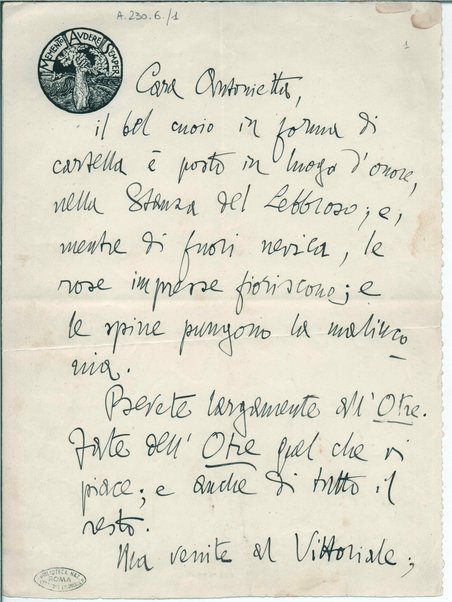 A.230.6./1
1
MEMENTO AUDERE SEMPER
Cara Antonietta,
il bel cuoio in forma di
cartella è posto in luogo d'onore,
nella Stanza del Lebbroso; e,
mentre di fuori nevica, le
rose impresse fioriscono; e
le spine pungono la malinco
nia.
Bevete largamente all'Otre.
Fate dell'Otre quel che vi
piace; e anche di tutto il
resto.
Ma venite al Vittoriale;
BIBLIOTECA NAZ.
ROMA